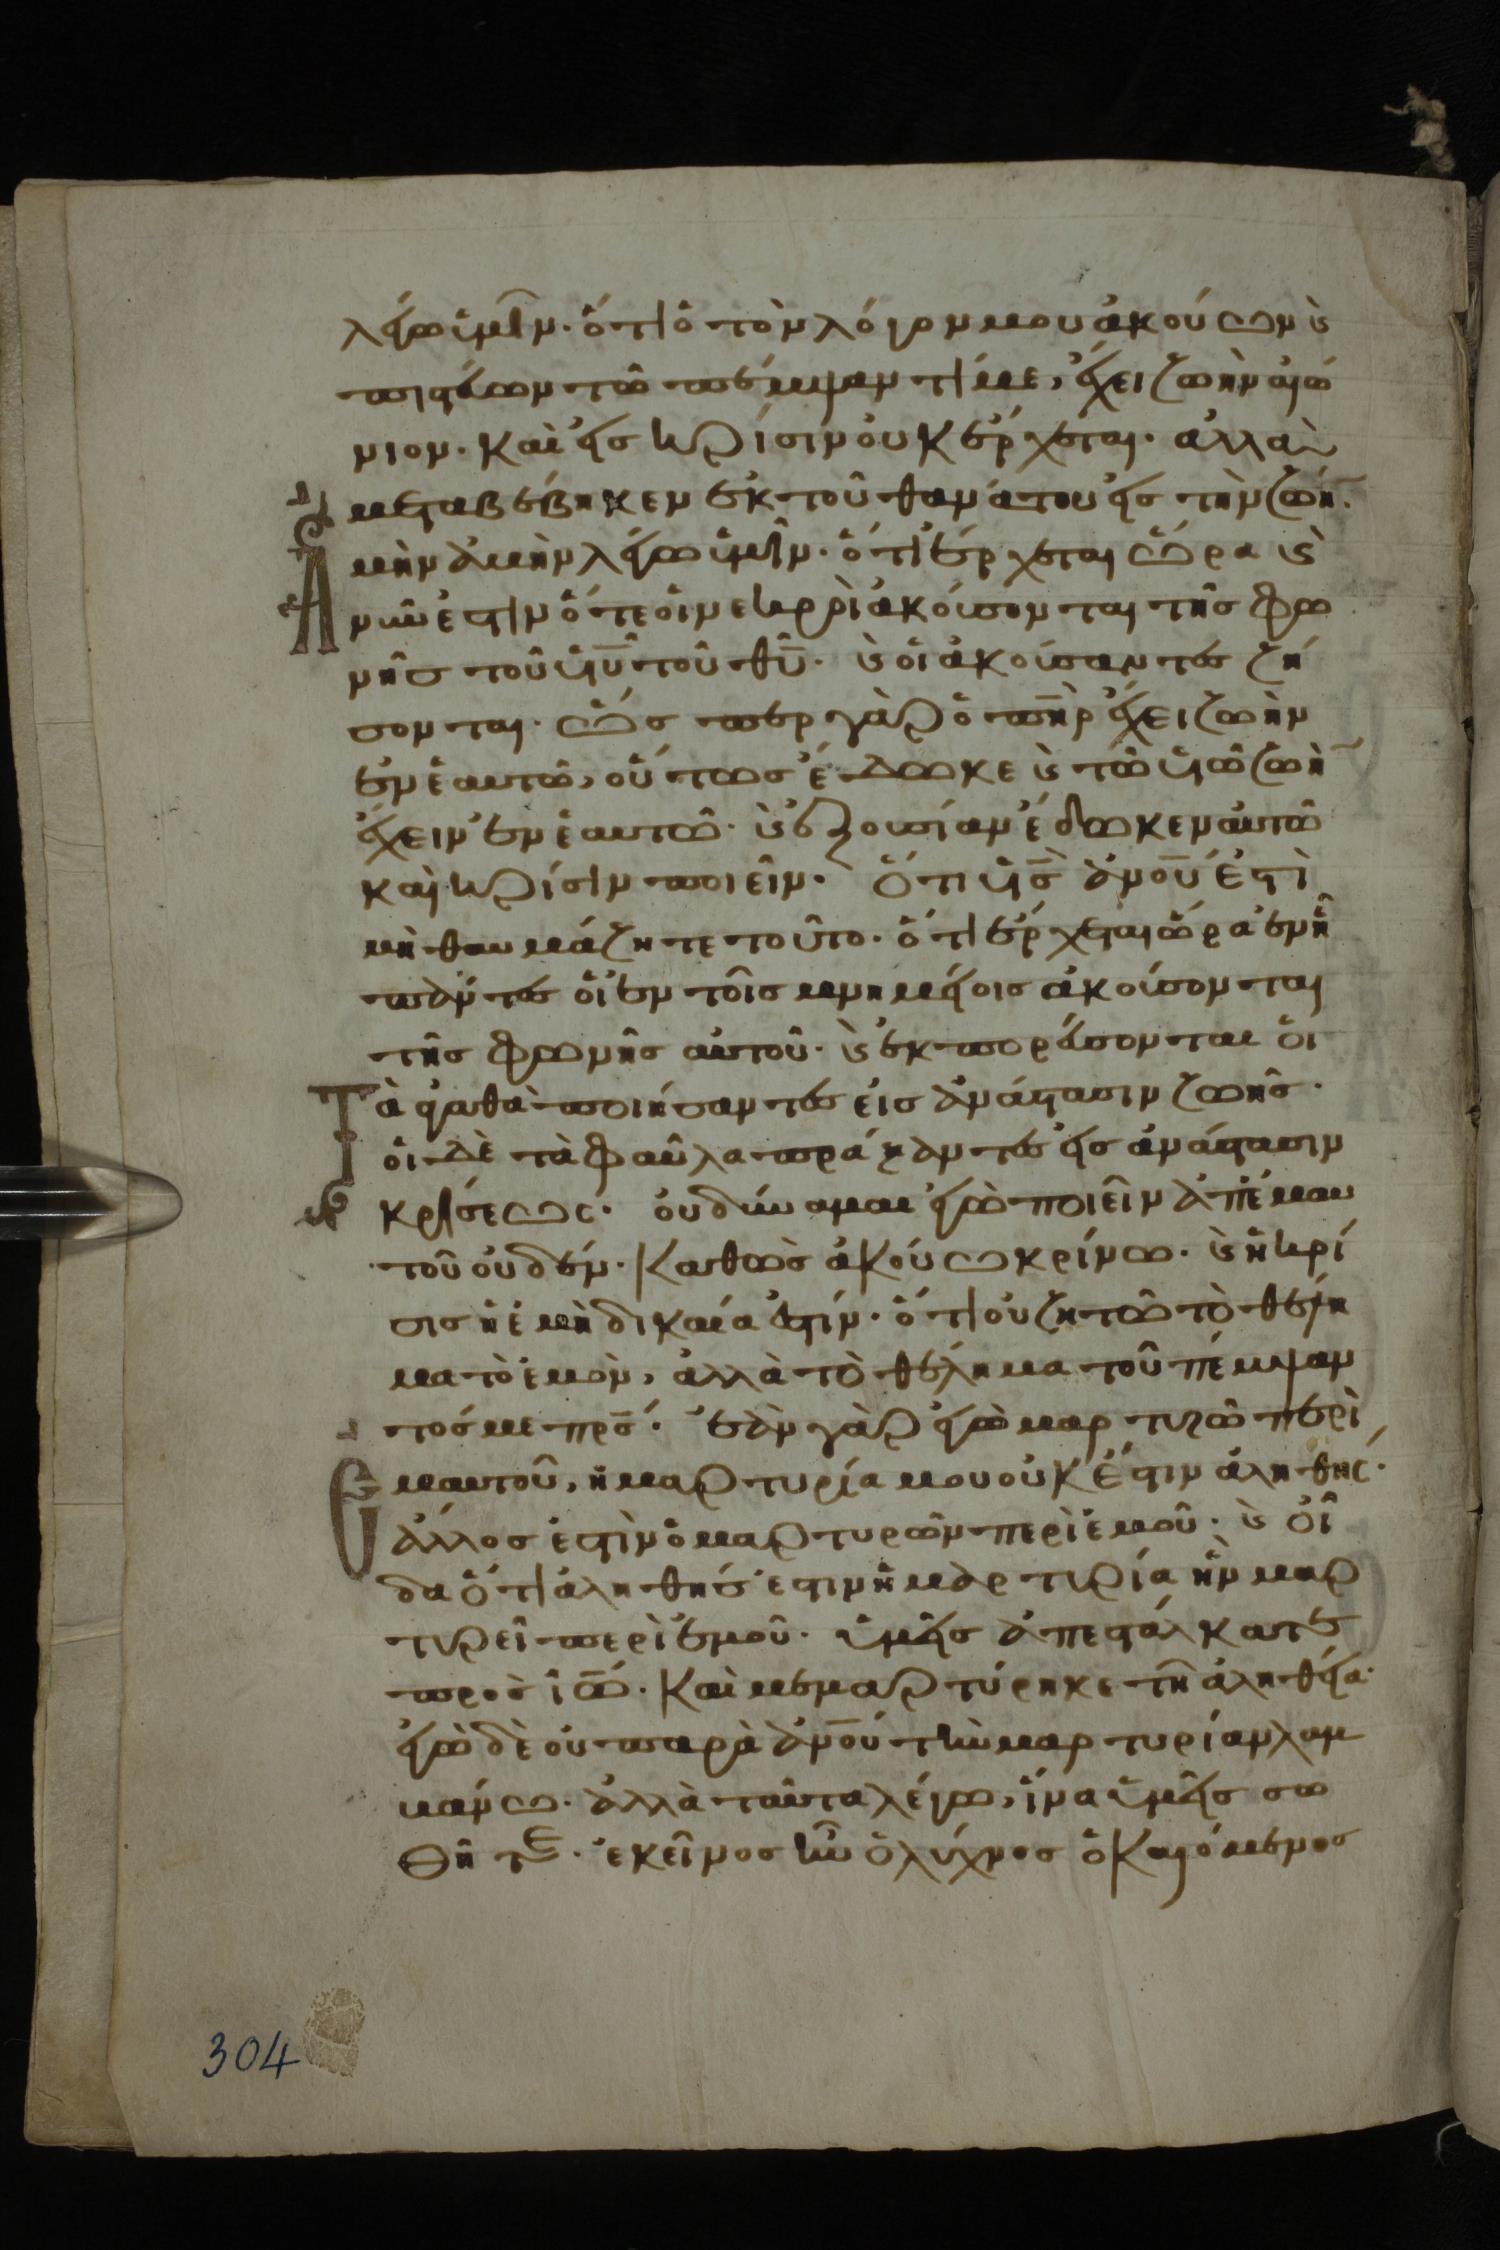 λέγω ὑμῖν· ὅτι ὁ τὸν λόγον μου ἀκούων ϗ
πιστεύων τῶ πέμψαντί με, ἔχει ζωὴν αἰώ
νιον· καὶ εἰς κρίσιν οὐκ ἔρχεται· ἀλλὰ
μεταβέβηκεν ἐκ τοῦ θανάτου εἰς τὴν ζωήν·
Ἀμὴν ἀμὴν λέγω ὑμῖν· ὅτι ἔρχεται ὥρα ϗ
νῦν ἐστιν ὅτε οἱ νεκροὶ ἀκούσονται τῆς φω
νῆς τοῦ υἱῦ τοῦ θῦ· ϗ οἱ ἀκούσαντες ζή
σονται· ὥσπερ γὰρ ὁ πηρ ἔχει ζωὴν
ἐν ἑαυτῶ, οὕτως ἔδωκε ϗ τῶ υἱῶ ζωὴ̄
ἔχειν ἐν ἑαυτῶ· ϗ ἐξουσίαν ἔδωκεν αὐτῶ
καὶ κρίσιν ποιεῖν· Ὅτι υἱς ἀνου ἐστὶ
μὴ θαυμάζητε τοῦτο· ὅτι ἔρχεται ὥρα ἐν ἧ
πάντες οἱ ἐν τοῖς μνημείοις ἀκούσονται
τῆς φωνῆς αὐτοῦ· ϗ ἐκπορεύσονται οἱ
Τὰ ἀγαθὰ ποιήσαντες εἰς ἀνάστασιν ζωῆς·
οἱ δὲ τὰ φαῦλα πράξαντες εἰς ἀνάστασιν
κρίσεως· οὐ δύναμαι ἐγὼ ποιεῖν ἀπ' ἐμαυ
τοῦ οὐδέν· Καθὼς ἀκούω κρίνω· ϗ ἡ κρί
σις ἡ ἐμὴ δικαία ἐστίν· ὅτι οὐ ζητῶ τὸ θέλη
μα τὸ ἐμὸν, ἀλλὰ τὸ θέλημα τοῦ πέμψαν
τός με πρς· ἐὰν γὰρ ἐγὼ μαρτυρῶ περὶ
Ἐμαυτοῦ, ἡ μαρτυρία μου οὐκ ἔστιν ἀληθής·
ἄλλος ἐστὶν ὁ μαρτυρῶν περὶ ἐμοῦ· ϗ οἶ
δα ὅτι ἀληθής ἐστιν ἡ μαρτυρία ἣν μαρ
τυρεῖ περὶ ἐμοῦ· ὑμεῖς ἀπεστάλκατε
πρὸς ἰω· Καὶ μεμαρτύρηκε τῆ ἀληθεία·
ἐγὼ δὲ οὐ παρὰ ἀνου τὴν μαρτυρίαν λαμ
βάνω· ἀλλὰ ταῦτα λέγω, ἵνα ὑμεῖς σω
θῆτε· ἐκεῖνος ἦν ὁ λύχνος ὁ καιόμενος
304